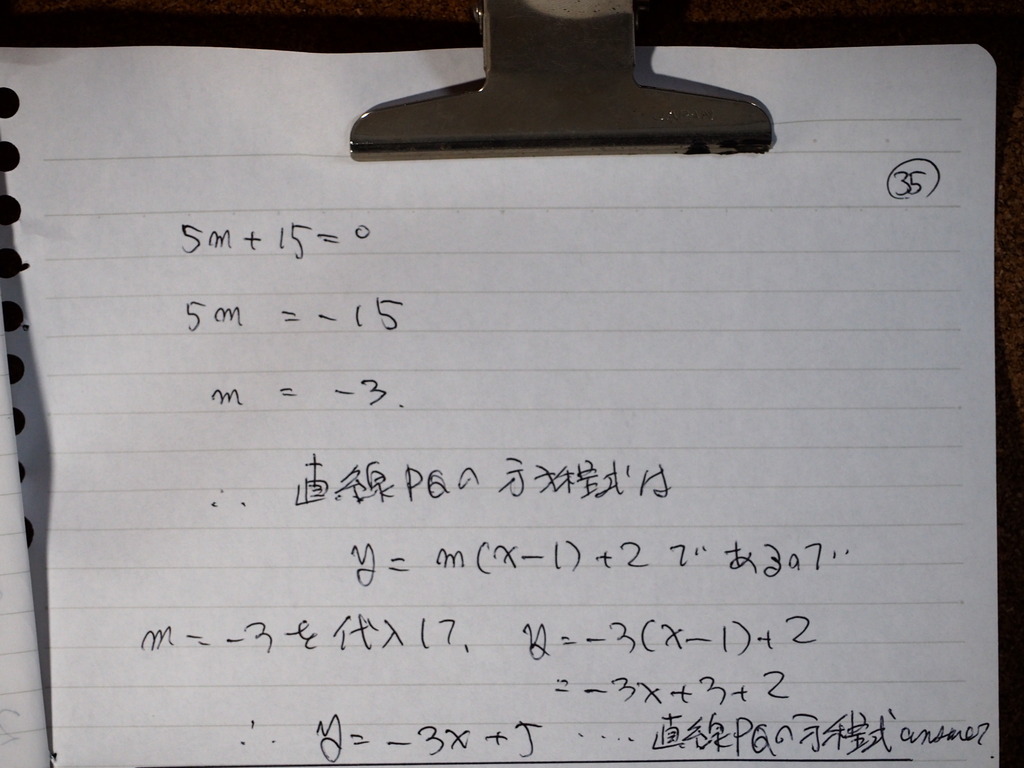 ㉟
5m + 15 = 0
5m = -15
m = -3.
∴ 直線PQの方程式は
y = m(x-1)+2であるので
m = -3を代入して、 y = -3(x-1)+2
= -3x+3+2
∴ y = -3x+5 ‥‥ 直線PQの方程式 answer